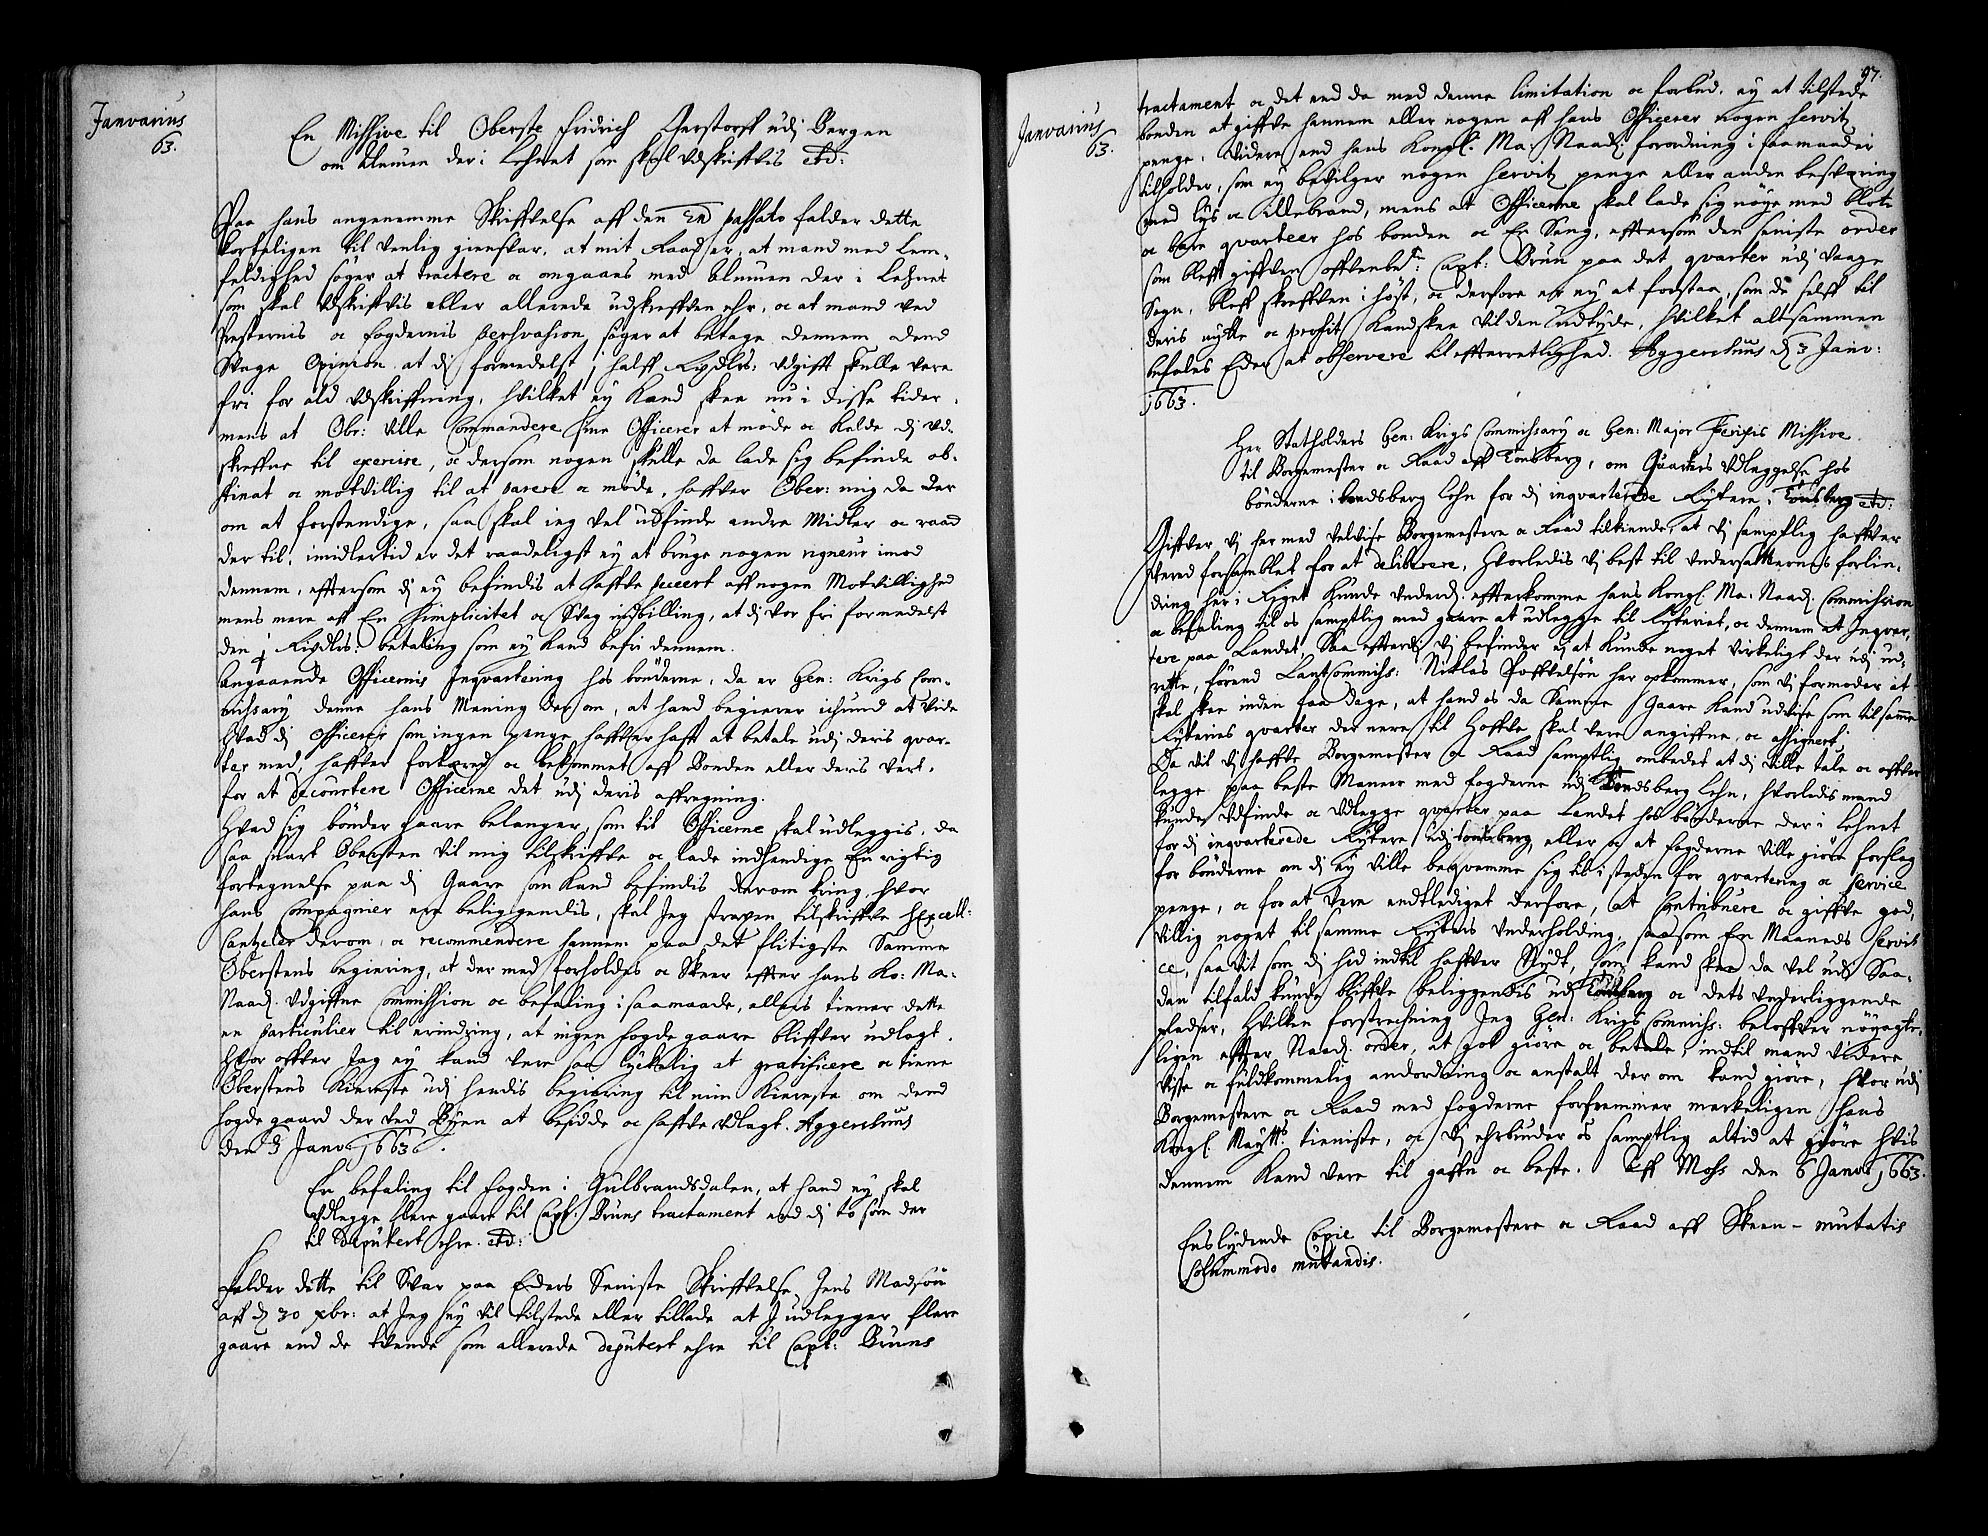 Janvarius
63.
En Missive til Oberste Fridrich Verstorff udj Bergen
om Almuen der i Lehnet som skal udskriffvis etc:
Paa hans angenemme Skriffvelse aff den 2n passato falder dette
korteligen til venlig giensvar, at mit Raad er, at mand med Lem-
feldighed søger at tractere oc omgaaes med Almuen der i Lehnet
som skal udskriffvis eller allerede udskreffven ehr, oc at mand ved
Presternis oc Fogdernis persvasion, søger at betage dennem dend
Svage Opinion at dj formedelst ½ halff Rixdlrs: udgifft skulle vere
fri for ald udskriffning, hvilket ej kand skee nu i disse tider,
mens at Obr: ville Commandere sine Officerer at møde oc holde dj ud-
skreffne til exercise, oc dersom nogen skulle da lade sig befinde ob-
stinat oc motvillig til at parere oc møde, haffver Ober: mig da der
om at forstendige, saa skal ieg vel udfinde andre Midler oc raad
der til, imidlertid er det raadeligst ej at bruge nogen rigueur imod
dennem, effterson dj ej befindis at haffve peccert aff nogen Motvillighed
mens mere aff En Simplicitet oc Svag indbilling, at dj var fri formedelst
den ½ Rixdlrs: betaling som ej kand befri dennem.
Angaaende Officernis Inqvartering hos bønderne, da er Gen: Krigs Com-
missarij denne hans Mening der om, at hand begierer ichund at vide
hvad dj Officerer som ingen penge haffver hafft at betale udj deris qvar-
ter med, haffver fortæred oc bekommet aff Bonden eller deris vert,
for at decourtere Officerne det udj deris affregning.
Hvad sig bønder gaare belanger, som til Officerne skal udleggis, da
saa snart Obersten vil mig tilskriffve oc lade indhendige En rigtig
fortegnelse paa dj Gaare som kand befindis der om kring, hvor
hans Compagnier ere beliggendis, skal Jeg straxen tilskriffve Hr Excell:
Cantzeler derom, oc recommendere hannem paa det flitigste Samme
Oberstens begiering, at der med forholdes oc skeer effter hans Ko: Ma:
Naad: udgiffne Commission oc befaling i saa maade, ellers tienner dette
en particulier til erindring, at ingen hogde gaare bliffver udlagt.
Hvor offver Jeg ej kand vere saa lyckelig at gratificere oc tiene
Oberstens Kiereste udj hendis begiering til min Kiereste om dend
hogde gaard der ved Byen at besidde oc haffve udlagt. Aggershuus
den 3 Janv: 1663.
En befaling til Fogden i Gulbrandsdalen, at hand ej skal
udlegge flere gaare til Capt: Bruns tractament end dj to som der
til deputert ehre. etc:
Falder dette til Svar paa Eders Seniste Skriffvelse Jens Madsøn
aff d 30 xbr: at Jeg ej vil tilstede eller tillade at I udlegger flere
gaare end de tvende som allerede deputert ehre til Capt: Bruns
97.
Janvarius
63.
tractament oc det end da med denne limitation oc forbud, ej at tilstede
bonden at giffve hannem eller nogen aff hans Officerer nogen Servitz
penge, videre end hans Kongl: Ma: Naad: forordning i saa maader
tilholder, som ej bevilger nogen Servitz penge eller anden besværing
med lys oc Ildebrand, mens at Officerne skal lade sig nøye med blot
oc bare qvarteer hos bonden oc En Seng, effterson den seniste order
som bleff giffven offvenbete: Capt: Brun paa det qvarter udj Vaage
Sogn, bleff skreffven i høst, oc derfore er ej at forstaa, som dj selff til
deris nytte oc proffit kandskee vil den udtyde, hvilket alt sammen
befales Eder at observere til effterretlighed. Aggershuus d 3 Janv:
1663.
Her Statholders Gen: Krigs Commissarij oc Gen: Major Missive
til Borgemester oc Raad aff Tonsberg, om Qvarters udleggelse hos
bønderne i Tondsberg Lehn for dj inqvarterede Rytere i Tonsberg etc:
Giffver Vj her med velvise Borgemestere oc Raad tilkiende, at Vj samptlig haffver
vered forsamblet for at deliberere, hvorledis Vj best til undersaatternes forlin-
ding her i Riget kunde underd: effterkomme hans Kongl: Ma: Naad: Commission
oc befaling til os samptlig med gaare at udlegge til Ryteriet, oc dennem at Inqvar-
tere paa Landet, Saa effterdj Vj befinder ej at kunde noget virkeligt der udj ud-
rette, førend Lantcommiss: Niklas Poffvelsøn her opkommer, som Vj formoder at
skal skee inden faa dage, at hand os da samme Gaare kand udvise som til samme
Ryteries qvarter der nere til Hoffve skal vere angiffne, oc assignert
Da vil Vj haffve Borgemester oc Raad samptlig ombedet at dj ville tale oc offver
legge paa beste Maneer med Fogderne udj Tondsberg Lehn, hvorledis mand
kunde udfinde oc udlegge qvarter paa Landet hos bønderne der i Lehnet
for dj inqvarterede Rytere udj Tonsberg, eller oc at Fogderne ville giøre forslag
for bønderne om dj ej ville beqvemme sig til i steden for qvartering oc Service
penge, oc for at vere endtlediget derfore, at Contribuere oc giffve god-
villig noget til samme Ryteris underholding, saasom En Maaneds Servit
ce, saavit som dj hid indtil haffver Nydt, som kand skee da vel udj Saa-
dan tilfald kunde bliffve beliggendis udj Tonsberg oc dets underliggende
pladser, hvilken forstrechning Jeg Gen: Krigs Commiss: beloffver nøyagte-
ligen effter Naad: order, at got giøre oc betale, indtil mand videre
visse oc fuldkommelig andordning oc anstalt der om kand giøre, hvor udj
Borgemestere oc Raad med Fogderne forfremmer merkeligen hans
Kongl: Maytts: tieniste, oc Vj ehrbuder os samptlig altid at giøre hvis
dennem kand vere til gaffn oc beste. Aff Moss den 6 Janv: 1663.
Enslydende Copie til Borgemestere oc Raad aff Skeen - mutatis
solummodo mutandis.